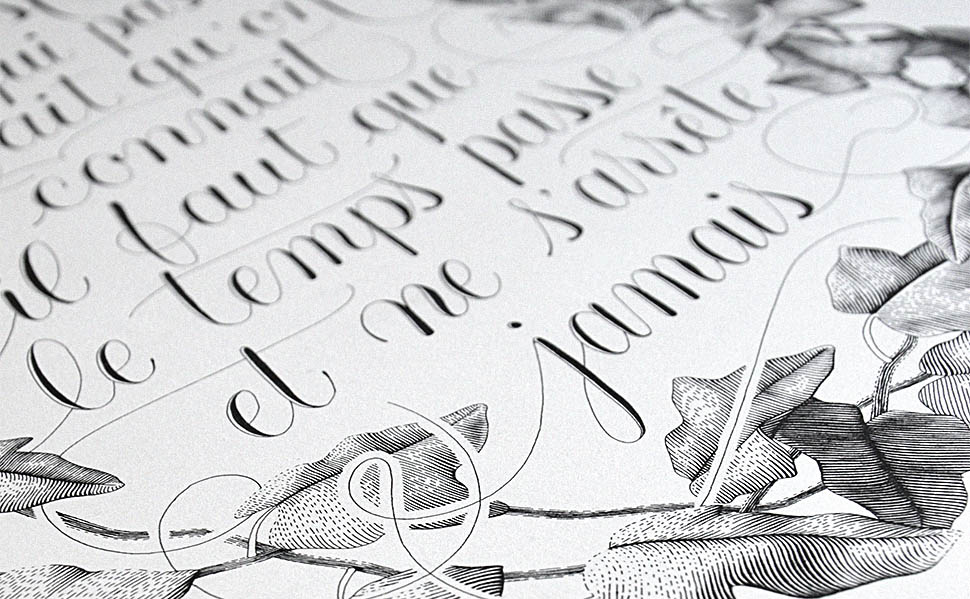 qui pas
ait qu'on
connait
il faut que
le temps passe
et ne s'arrête
jamais